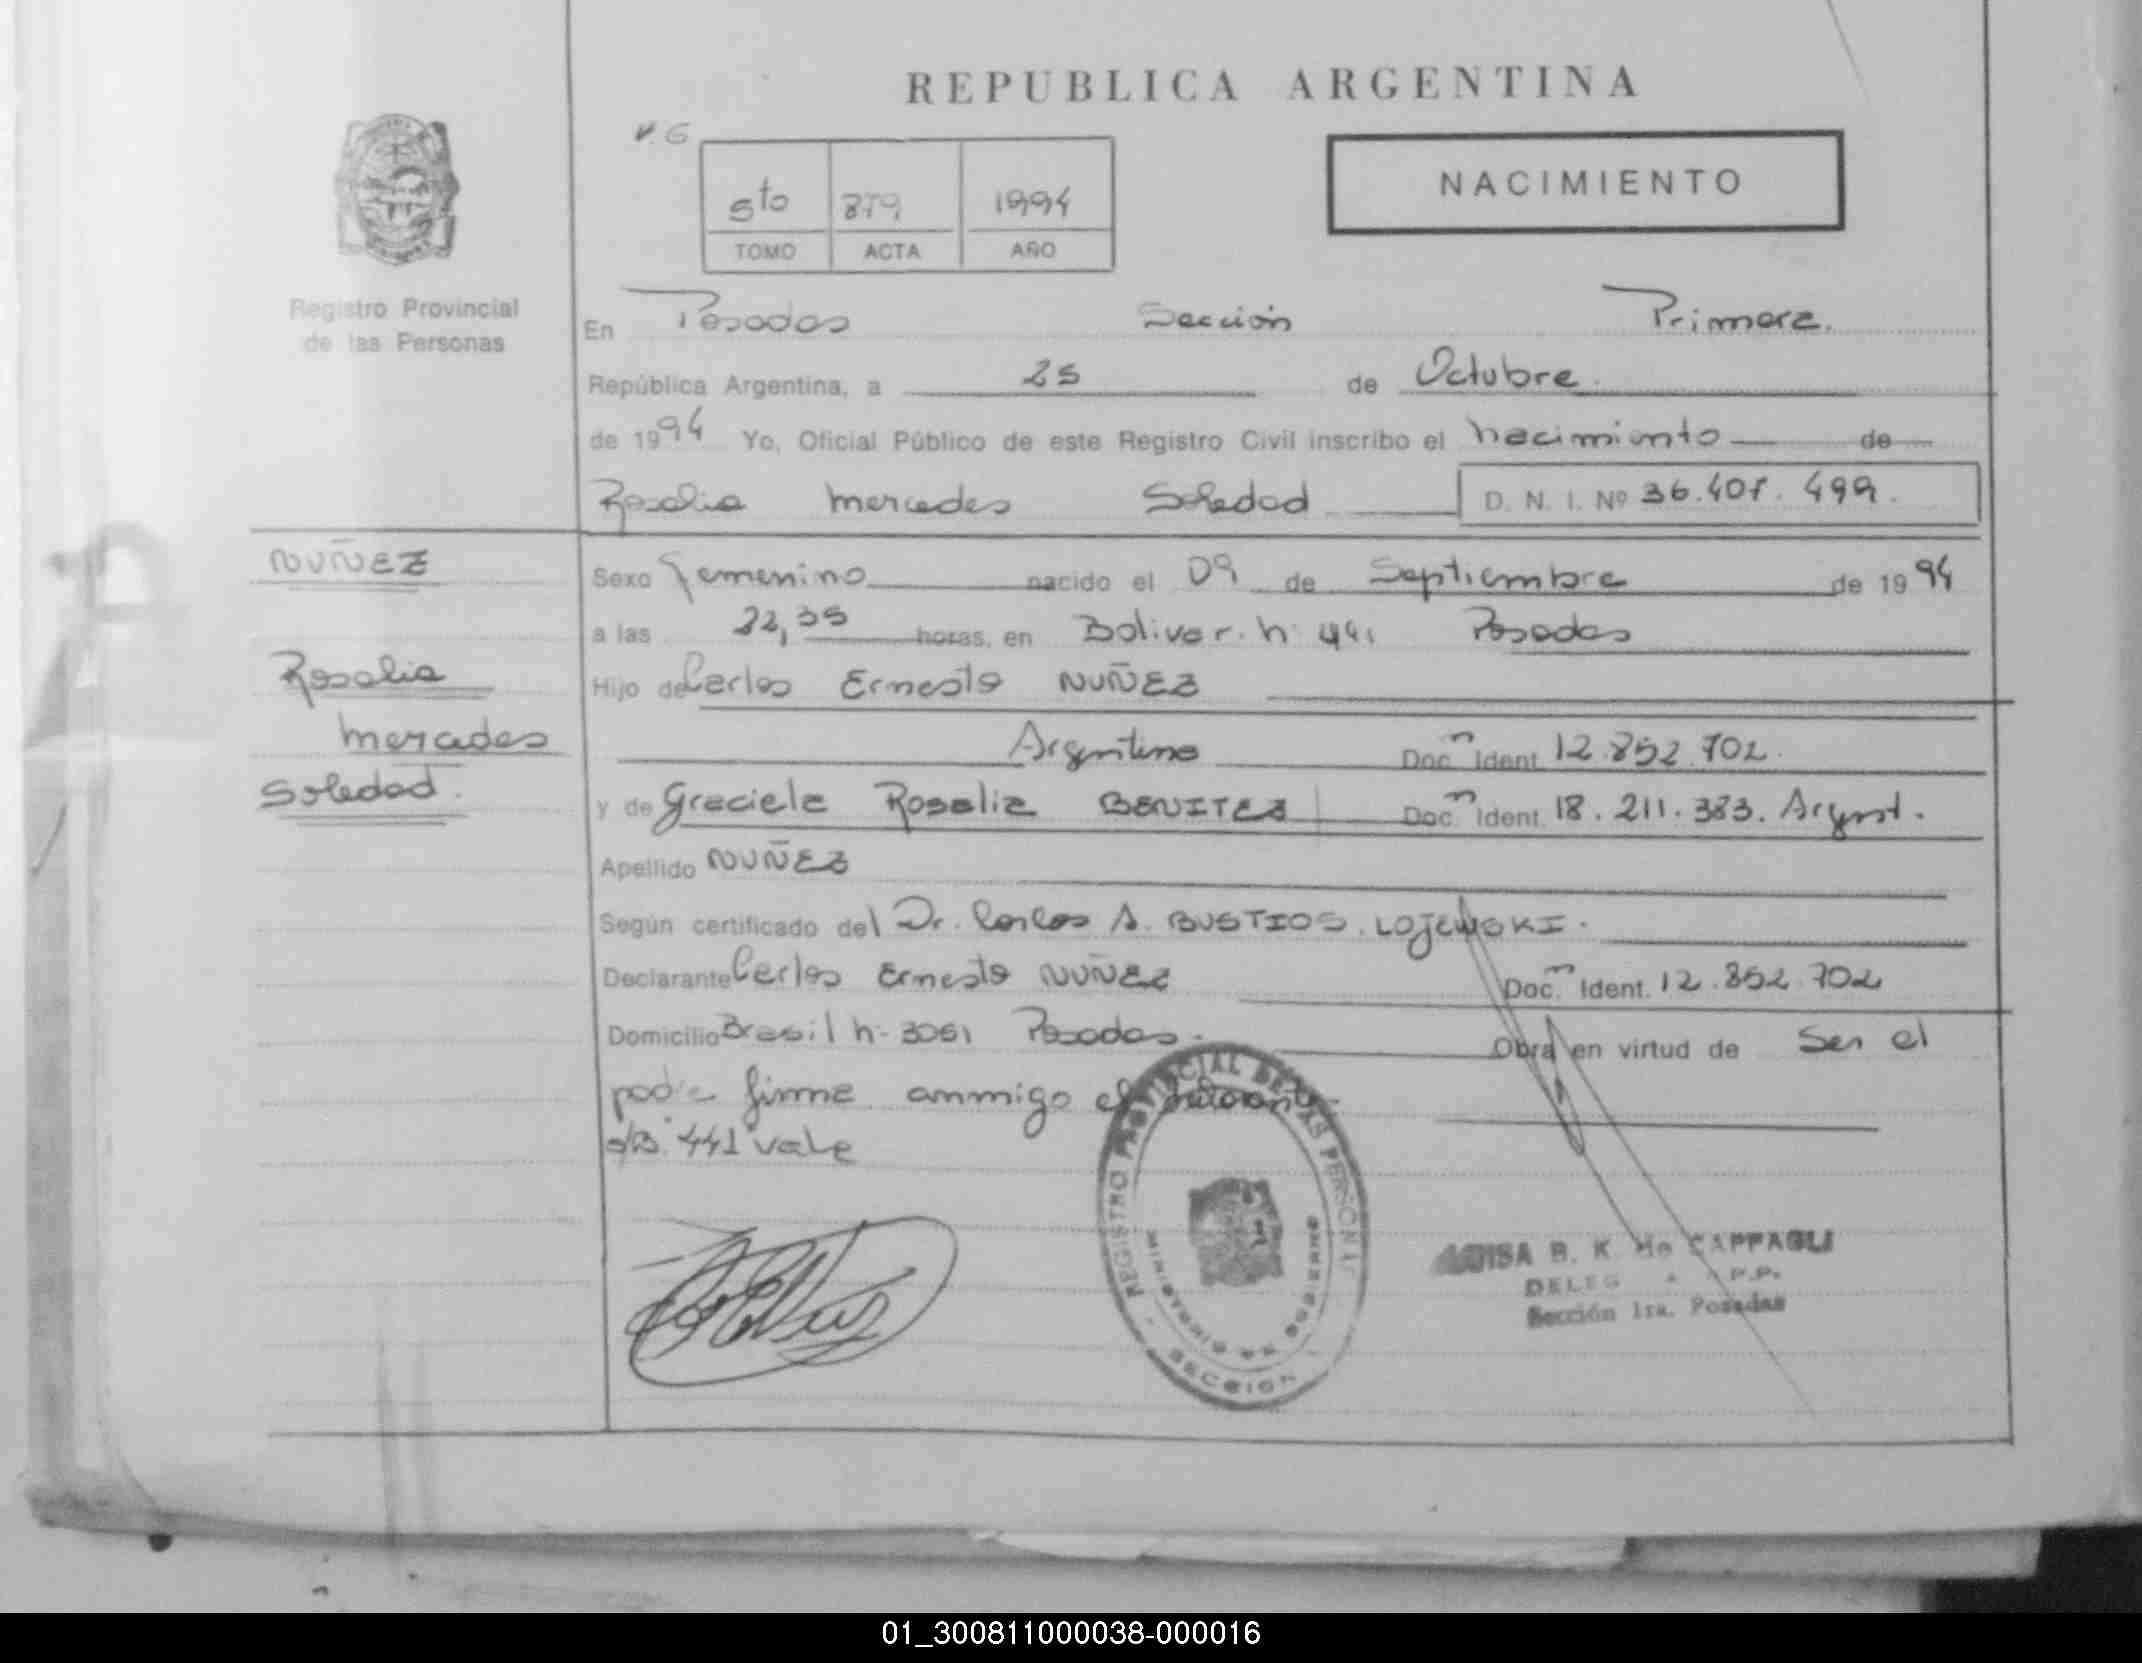 REPUBLICA ARGENTINA
V. G
5to 879 1994
TOMO ACTA AÑO
NACIMIENTO
Registro Provincial
de las Personas
En Posadas Sección Primera.
República Argentina, a 25 de Octubre.
de 1994 Yo, Oficial Público de este Registro Civil inscribo el nacimiento de
Rosalia Mercedes Soledad D. N. I. Nº 36.407.499.
NUÑEZ
Rosalia
Mercedes
Soledad.
Sexo Femenino nacido el 09 de Septiembre de 1994
a las 22,35 horas, en Bolivar. n: 441 Posadas
Hijo de Carlos Ernesto NUÑEZ
Argentino Doc.n Ident. 12.852.702.
y de Graciela Rosalia BENITEZ Doc.n Ident. 18.211.383. Argent.
Apellido NUÑEZ
Según certificado del Dr. Carlos A. BUSTIOS. LOJEWSKI.
Declarante Carlos Ernesto NUÑEZ Doc.n Ident. 12.852.702
Domicilio Brasil n: 3051 Posadas. Obra en virtud de Ser el
padre firma conmigo el
s/R. "441" vale
REGISTRO PROVINCIAL DE LAS PERSONAS
MINISTERIO DE GOBIERNO
SECCION 1
LUISA B. K. de CAPPAGLI
DELEG R.P.P.
Sección 1ra. Posadas
01_300811000038-000016